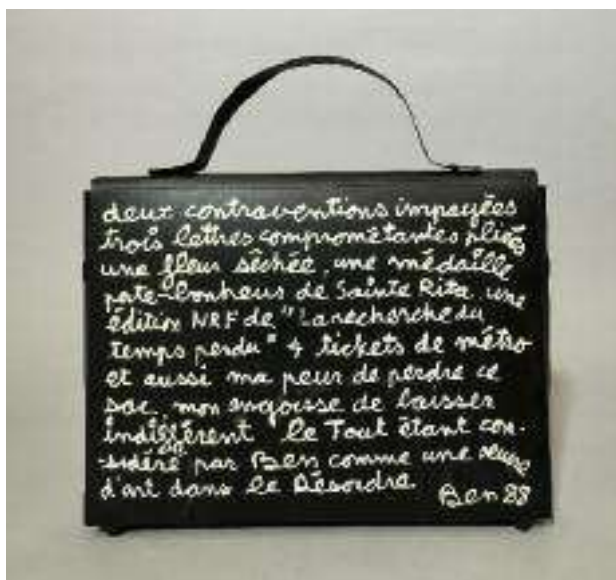 deux contraventions impayées
trois lettres compromettantes pliées
une fleur séchée, une médaille
porte-bonheur de Sainte Rita, une
édition NRF de "La recherche du
temps perdu" 4 tickets de métro
et aussi ma peur de perdre ce
sac, mon angoisse de laisser
indifférent le Tout étant con-
-sidéré par Ben comme une œuvre
d'art dans le Désordre
Ben 88